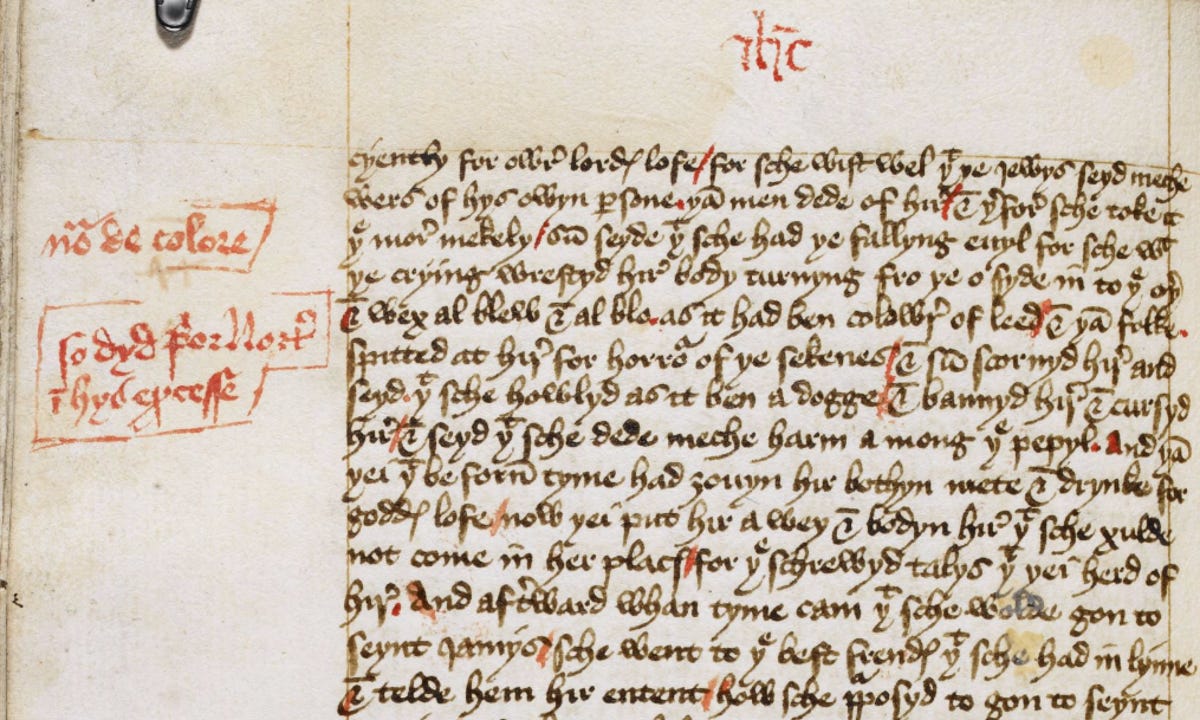 ihc
cyently for owr lordys lofe / for sche wist wel yt ye Jewys seyd meche
wers of hys owyn persone. yan men dede of hir / & yerfor sche toke it
ye mor mekely / Sum seyde yt sche had ye fallyng euyl for sche wt
ye crying wrestyd hir body turnyng fro ye o syde in to ye oyer
& wex al blew & al blo. as it had ben colowr of leed / & yan folke.
spitted at hir for horror of ye sekenes / & sum scornyd hir and
seyd. yt sche howlyd as it ben a dogge / & bannyd hir & cursyd
hir / & seyd yt sche dede meche harm a mong ye pepyl. And yan
yei yt be forn tyme had zouyn hir bothyn mete & drynke for
goddys lofe / now yei put hir a wey & bodyn hir yt sche xulde
not come in her places / for ye schrewyd talys yt yei herd of
hir. And afterward whan tyme cam yt sche wolde gon to
seynt Jamys / sche went to ye best frendys yt sche had in lynne
& telde hem hir entent / how sche purposyd to gon to seynt
nota de colore
so dyd prior Nort
in hys excesse